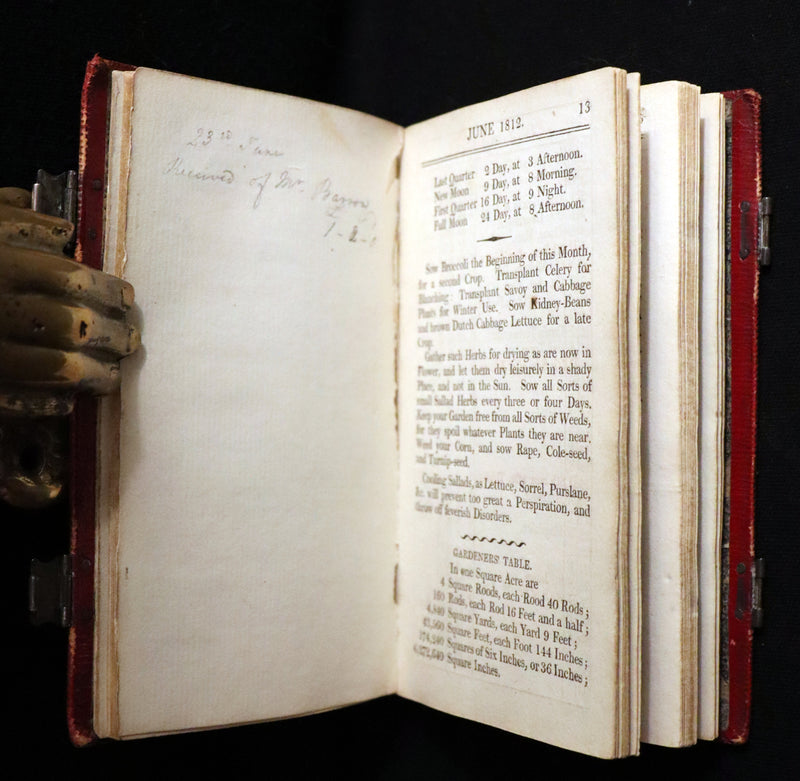 23rd June
Received of Mr. Barron
JUNE 1812.
13
Last Quarter 2 Day, at 3 Afternoon.
New Moon 9 Day, at 8 Morning.
First Quarter 16 Day, at 9 Night.
Full Moon 24 Day, at 8 Afternoon.
Sow Broccoli the Beginning of this Month,
for a second Crop. Transplant Celery for
Blanching. Transplant Savoy and Cabbage
Plants for Winter Use. Sow Kidney-Beans
and brown Dutch Cabbage Lettuce for a late
Crop.
Gather such Herbs for drying as are now in
Flower, and let them dry leisurely in a shady
Place, and not in the Sun. Sow all Sorts of
small Sallad Herbs every three or four Days.
Keep your Garden free from all Sorts of Weeds,
for they spoil whatever Plants they are near.
Weed your Corn, and sow Rape, Cole-seed,
and Turnip-seed.
Cooling Sallads, as Lettuce, Sorrel, Purslane,
&c. will prevent too great a Perspiration, and
throw off feverish Disorders.
GARDENERS' TABLE.
In one Square Acre are
4 Square Roods, each Rood 40 Rods;
160 Rods, each Rod 16 Feet and a half;
4,840 Square Yards, each Yard 9 Feet;
43,560 Square Feet, each Foot 144 Inches;
174,240 Squares of Six Inches, or 36 Inches;
6,272,640 Square Inches.